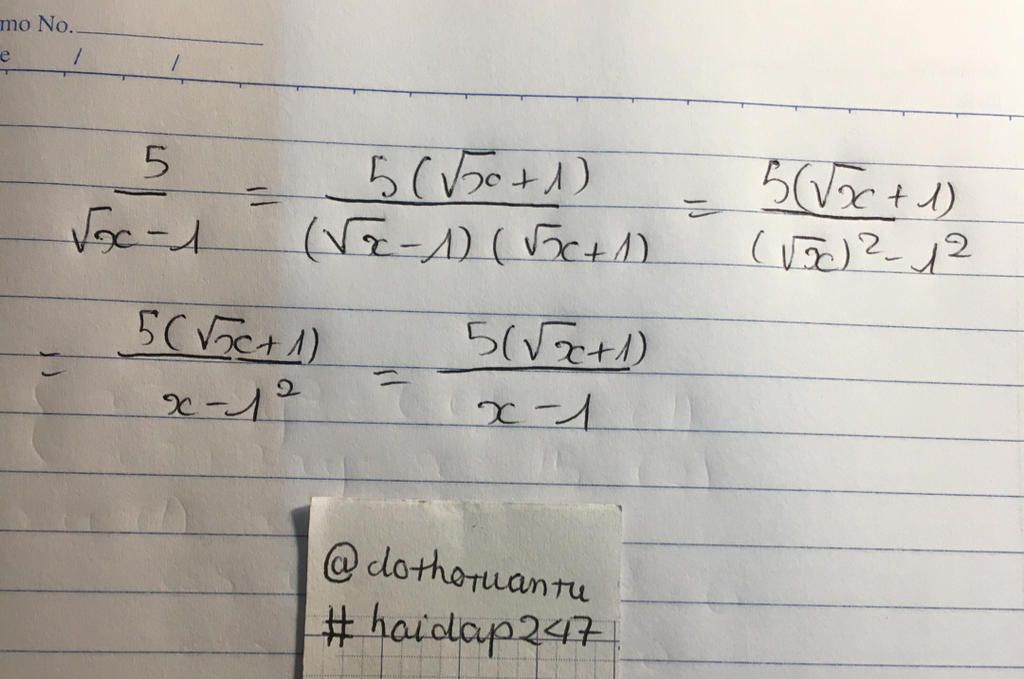 mo No.
e / /
5/(√x - 1) = 5(√x + 1)/((√x - 1)(√x + 1)) = 5(√x + 1)/((√x)² - 1²)
= 5(√x + 1)/(x - 1²) = 5(√x + 1)/(x - 1)
@dothotuantu
# haidap247